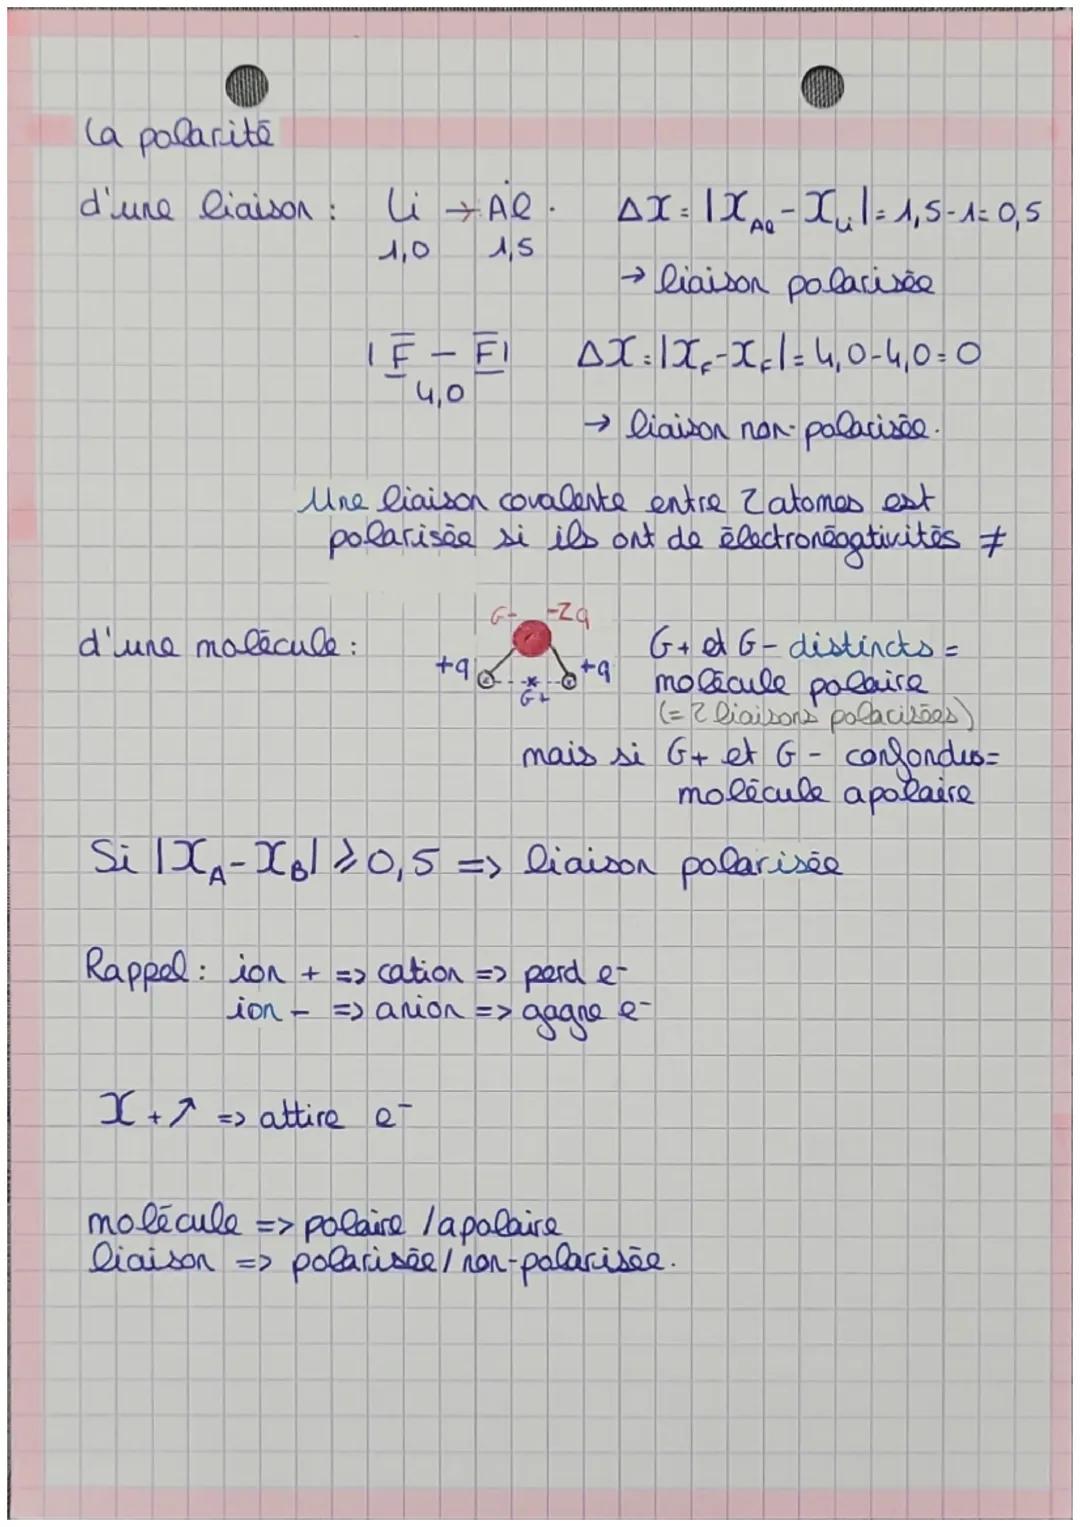 La polarité
d'une liaison : Li → Al · ΔX = |X_Al - X_Li| = 1,5 - 1 = 0,5
1,0 1,5
→ liaison polarisée
|F - F| ΔX = |X_F - X_F| = 4,0 - 4,0 = 0
4,0
→ liaison non-polarisée.
Une liaison covalente entre 2 atomes est
polarisée si ils ont de électronégativités ≠
G- -2q
d'une molécule : +q +q G+ et G- distincts =
G+ molécule polaire
(= 2 liaisons polarisées)
mais si G+ et G- confondus =
molécule apolaire
Si |X_A - X_B| ≥ 0,5 => liaison polarisée
Rappel : ion + => cation => perd e-
ion - => anion => gagne e-
X + ↗ => attire e-
molécule => polaire / apolaire
liaison => polarisée / non-polarisée.